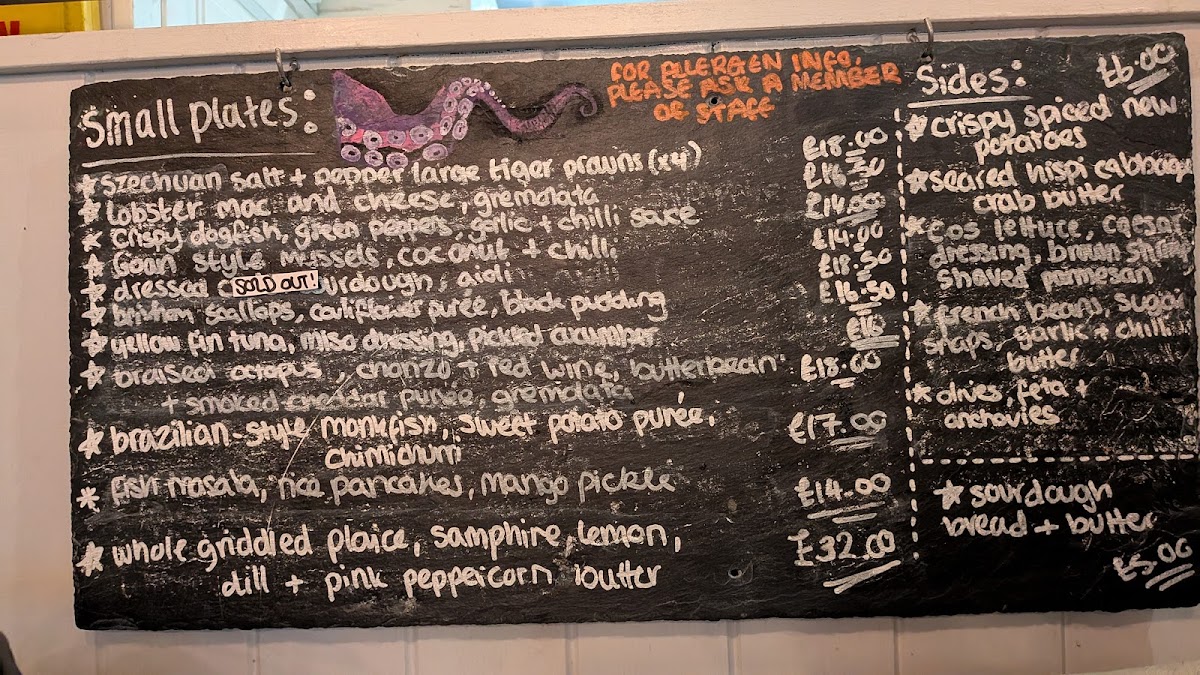 Small plates:
FOR ALLERGEN INFO,
PLEASE ASK A MEMBER
OF STAFF
* Szechuan salt + pepper large tiger prawns (x4) £18.00
* lobster mac and cheese, gremolata £16.50
* crispy dogfish, green peppers, garlic + chilli sauce £14.00
* Goan style mussels, coconut + chilli £14.00
* dressed SOLD OUT! aioli £18.50
* brixham scallops, cauliflower purée, black pudding £16.50
* yellow fin tuna, miso dressing, pickled cucumber £16
* braised octopus, chorizo + red wine, butterbean £18.00
+ smoked cheddar purée, gremolata
* brazilian-style monkfish, sweet potato purée, £17.00
chimichurri
* fish masala, rice pancakes, mango pickle £14.00
* whole griddled plaice, samphire, lemon, £32.00
dill + pink peppercorn butter
Sides: £6.00
* crispy spiced new
potatoes
* seared hispi cabbage
crab butter
* cos lettuce, caesar
dressing, brown shrimp
shaved parmesan
* french beans, sugar
snaps, garlic + chilli
butter
* olives, feta +
anchovies
* sourdough
bread + butter
£5.00